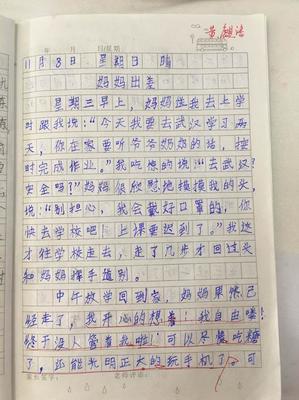 年 月 日/星期
11月8日 星期日 晴
妈妈出差
星期三早上，妈妈送我去上学
时跟我说：“今天我要去武汉学习两
天，你在家要听爷爷奶奶的话，按
时完成作业。”我吃惊的说：“去武汉？
安全吗？”妈妈很欣慰地摸摸我的头，
说：“别担心，我会戴好口罩的，你
快去学校吧！上课要迟到了。”我这
才往学校走去，走了几步才回过头
和妈妈挥手道别。
中午放学回到家，妈妈果然已
经走了，我开心的想着：我自由喽！
终于没人管着我啦！可以尽情吃糖
了，还能光明正大的玩手机了。可
家长签字： 老师评语：